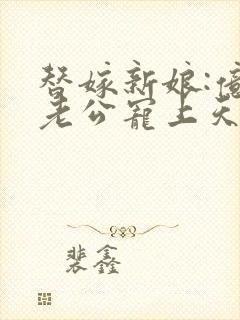 替嫁新娘:億
老公寵上天
裴鑫